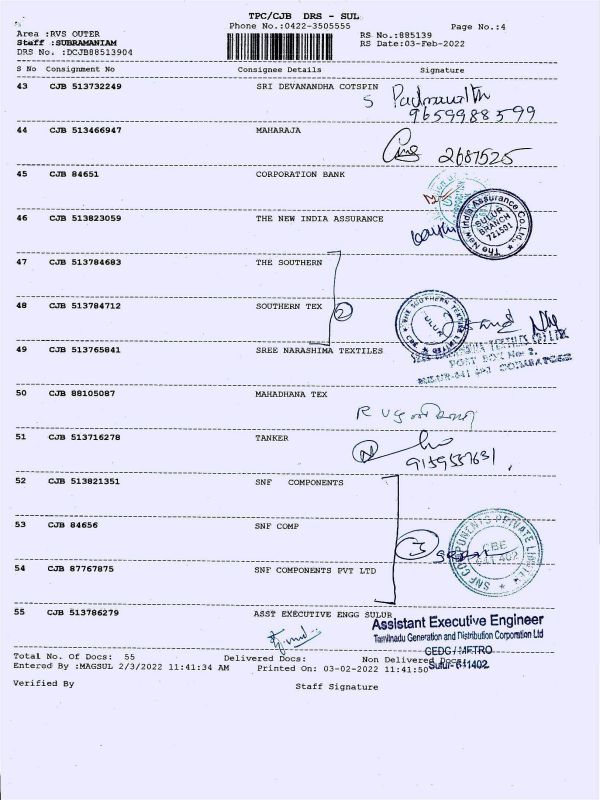 TPC/CJB DRS - SUL
Phone No.:0422-3505555
Page No.:4
Area :RVS OUTER
Staff :SUBRAMANIAM
DRS No. :DCJB88513904
RS No.:885139
RS Date:03-Feb-2022
S No Consignment No Consignee Details Signature
43 CJB 513732249 SRI DEVANANDHA COTSPIN
9659988599
44 CJB 513466947 MAHARAJA
2687525
45 CJB 84651 CORPORATION BANK
46 CJB 513823059 THE NEW INDIA ASSURANCE
The New India Assurance Co. Ltd.,
SULUR
BRANCH
721501
47 CJB 513784683 THE SOUTHERN
48 CJB 513784712 SOUTHERN TEX
2
49 CJB 513765841 SREE NARASHIMA TEXTILES
50 CJB 88105087 MAHADHANA TEX
51 CJB 513716278 TANKER
9159557631
52 CJB 513821351 SNF COMPONENTS
53 CJB 84656 SNF COMP
3
SNF COMPONENTS PRIVATE LIMITED
CBE
54 CJB 87767875 SNF COMPONENTS PVT LTD
55 CJB 513786279 ASST EXECUTIVE ENGG SULUR
Assistant Executive Engineer
Tamilnadu Generation and Distribution Corporation Ltd
GEDC / METRO
Sulur- 641402
Total No. Of Docs: 55 Delivered Docs: Non Delivered Docs:
Entered By :MAGSUL 2/3/2022 11:41:34 AM Printed On: 03-02-2022 11:41:50
Verified By Staff Signature